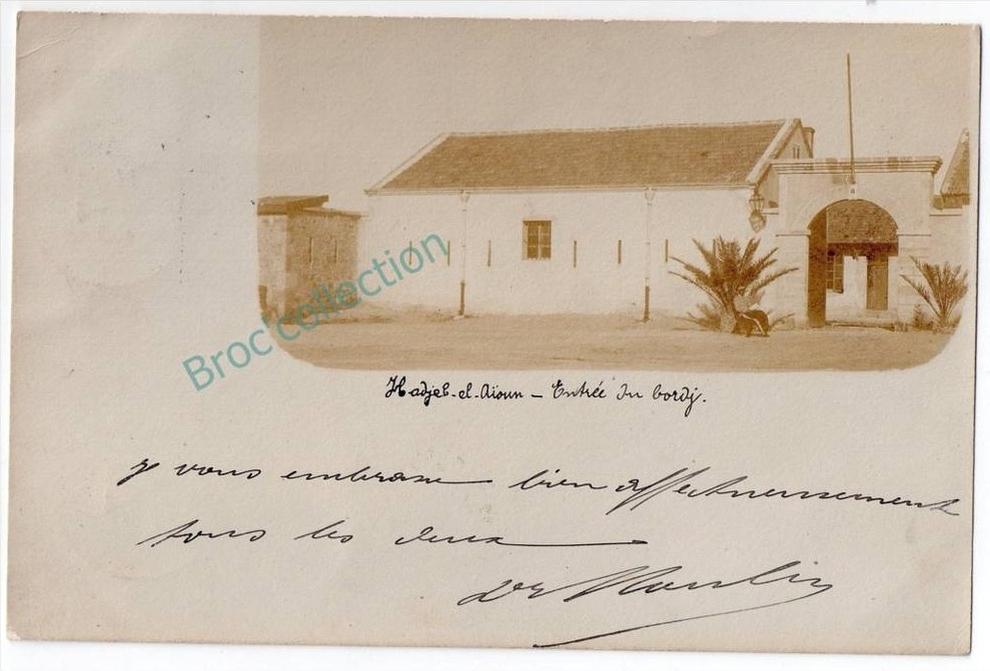 Broc'collection
Hadjeb-el-Aïoun - Entrée du bordj.
je vous embrasse bien affectueusement
tous les deux
Dr Moulin